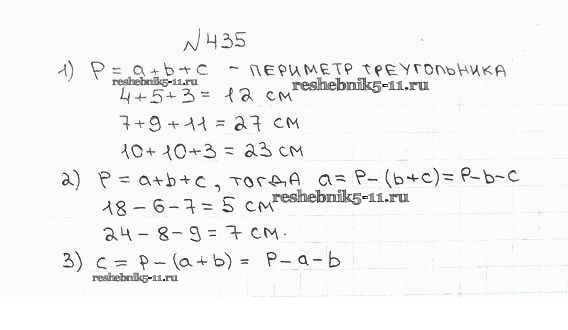 №435
1) P = a+b+c - ПЕРИМЕТР ТРЕУГОЛЬНИКА
reshebnik5-11.ru
reshebnik5-11.ru
4+5+3 = 12 см
7+9+11 = 27 см
10+10+3 = 23 см
2) P = a+b+c, тогда a = P-(b+c) = P-b-c
reshebnik5-11.ru
18-6-7 = 5 см
24-8-9 = 7 см.
3) c = P-(a+b) = P-a-b
reshebnik5-11.ru